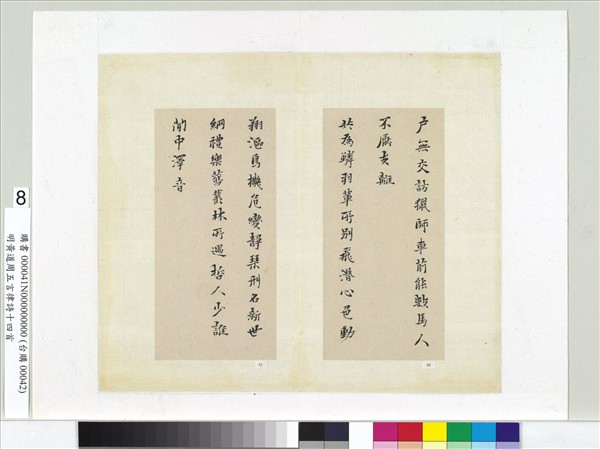 户無交訪獵師車前能歎馬人
不厭離
於為鱗羽所別飛潛心邑動
翔漚鳥機危變靜琴刑名新世
網禮樂舊叢林所遇哲人少誰
聞中澤音
8
購書 000041N000000000 (台購 00042)
明黃道周五言律詩十四首